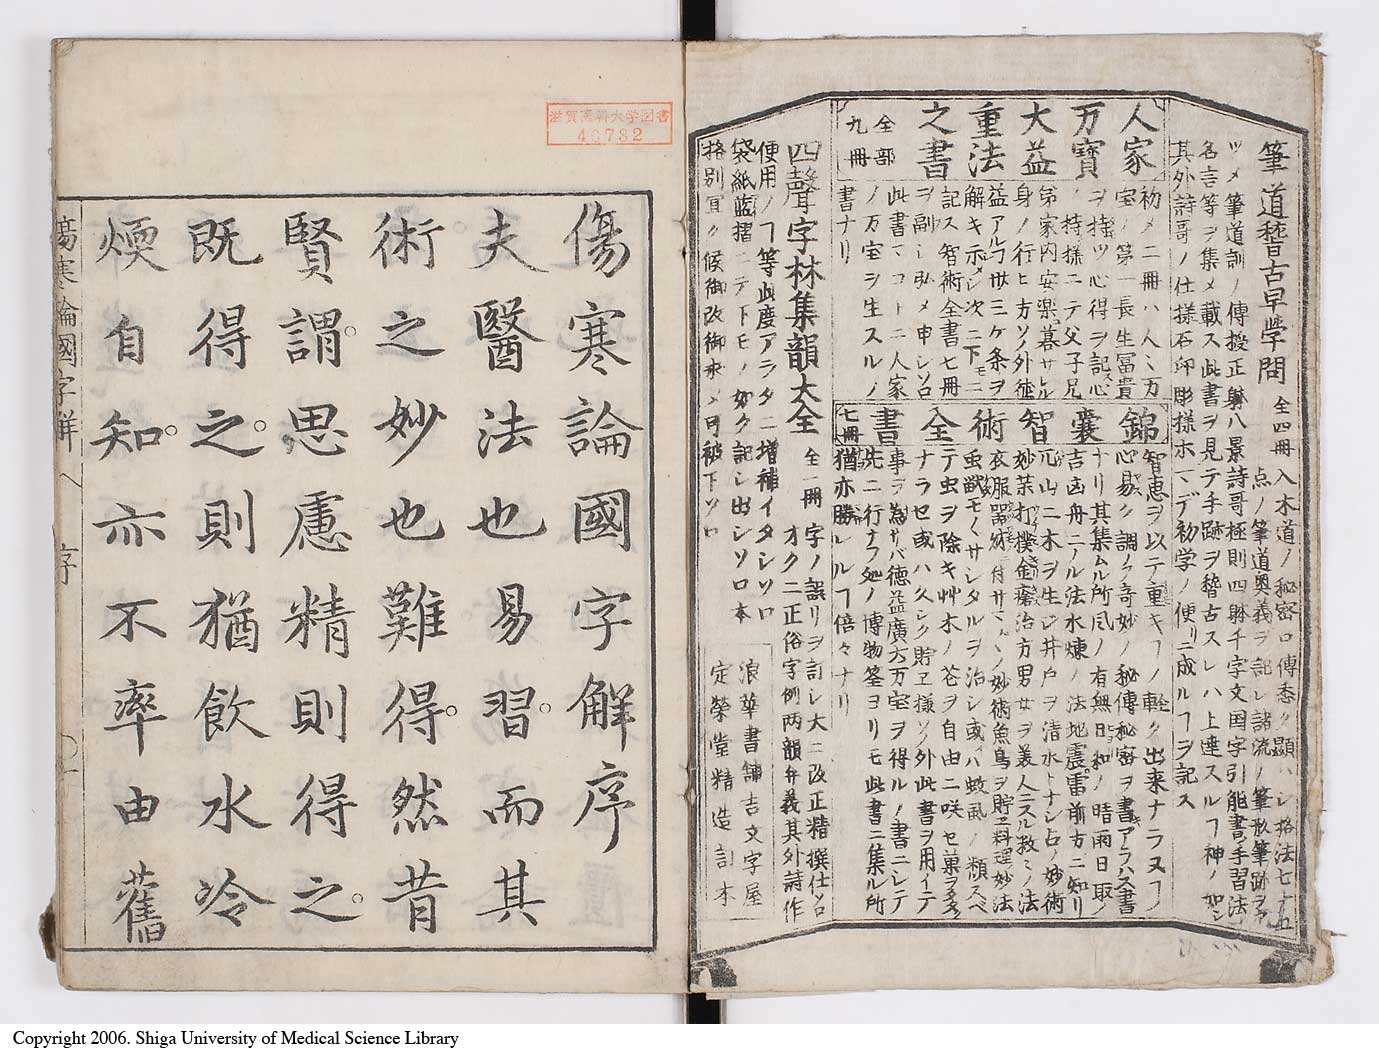 筆道稽古早学問 全四冊
入木道ノ秘密口傳悉ク顕ハシ格法七十五
点ノ筆道奥義ヲ記レ諸流ノ筆形筆跡ヲア
ツメ筆道訓ノ傳授正躰八景詩哥極則四躰千字文国字引能書手習法
名言等ヲ集メ載ス此書ヲ見テ手跡ヲ稽古スレハ上達スルヿ神ノ如シ
其外詩哥ノ仕様石印彫様ホマデ初学ノ便リニ成ルヿヲ記ス
人家
万寳
大益
重法
之書
全部
九冊
初メ二冊ハ人々万
宝ノ第一長生冨貴
ヲ持ツ心得ヲ記ス
ノ持様ニテ父子兄
弟家内安楽ニ暮サルヽ
身ノ行ヒ方ソノ外徳
益アルヿ丗三ケ条ヲ
解キ示メシ次ニ下モニ
記ス智術全書七冊
ヲ副ヘ弘メ申シソロ
此書マコトニ人家
ノ万宝ヲ生スルノ
書ナリ
錦
嚢
智
術
全
書
七冊
智恵ヲ以テ重キヿノ軽ク出来ナラヌヿノ
心易ク調フ奇妙ノ秘傳秘密ヲ書アラハス書
ナリ其集ムル所凨ノ有無日和ノ晴雨日取ノ
吉凶舟ニノル法水煉ノ法地震雷前方ニ知リ
兀山ニ木ヲ生シ井戸ヲ清水トナシ占ノ妙術
妙茶打撲金瘡治方男女ヲ美人ニスル救ミノ法
虫獣モクサンタルヲ治シ或ハ蚊風ノ類スベ
テ虫ヲ除キ艸木ノ花ヲ自由ニ咲セ菓ヲ多ク
ナラセ或ハ久シク貯ヱ様ソノ外此書ヲ用イテ
事ヲ為サバ徳益廣大万宝ヲ得ルノ書ニレテ
先ニ行ナフ処ノ博物筌ヨリモ此書ニ集ル所
猶亦勝レルヿ倍々ナリ
四聲字林集韻大全 全一冊
字ノ誤リヲ訂レ大ニ改正精撰仕ソロ
オクニ正俗字例两韻弁義其外詩作
便用ノヿ等此度アラタニ増補イタシソロ
袋紙藍摺ニテ下ヒノ如ク記レ出シソロ本
格別宜ク候御改御求メ可被下ソロ
浪華書舗吉文字屋
定榮堂精造訂本
滋賀医科大学図書
40732
傷寒論國字解序
夫醫法也易習。而其
術。之妙也難得。然昔
賢謂。思慮精則得之。
既得之。則猶飲水冷
煖自知。亦不率由舊
傷寒論國字解 序
Copyright 2006. Shiga University of Medical Science Library